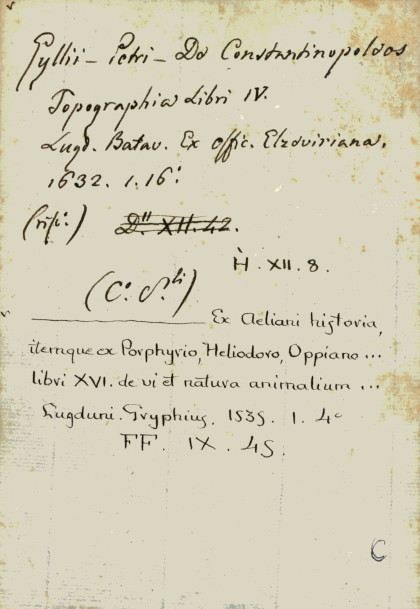 Gyllii - Petri - De Constantinopoleos
Topographia Libri IV.
Lugd. Batav. Ex offic. Elzeviriana.
1632. 1. 16º
(rist:)
D." XII. 42.
H. XII. 8.
(Cº S.ti)
Ex Aeliani historia,
itemque ex Porphyrio, Heliodoro, Oppiano ...
libri XVI. de vi et natura animalium ...
Lugduni. Gryphius, 1535. 1. 4º
FF. IX. 45.
C